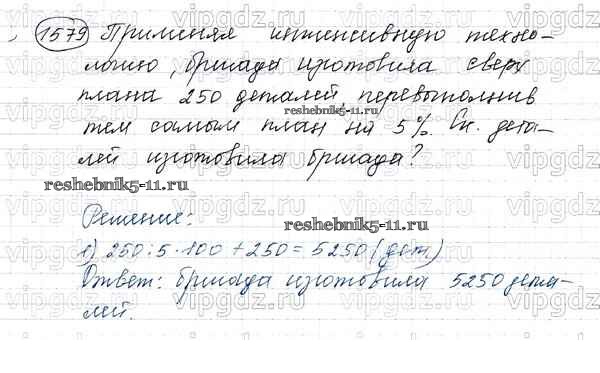 1579 Применяя интенсивную техно-
логию, бригада изготовила сверх
плана 250 деталей перевыполнив
тем самым план на 5%. Ск. дета-
лей изготовила бригада?
reshebnik5-11.ru
Решение:
reshebnik5-11.ru
1) 250:5·100+250=5250 (дет)
Ответ: бригада изготовила 5250 дета-
лей.